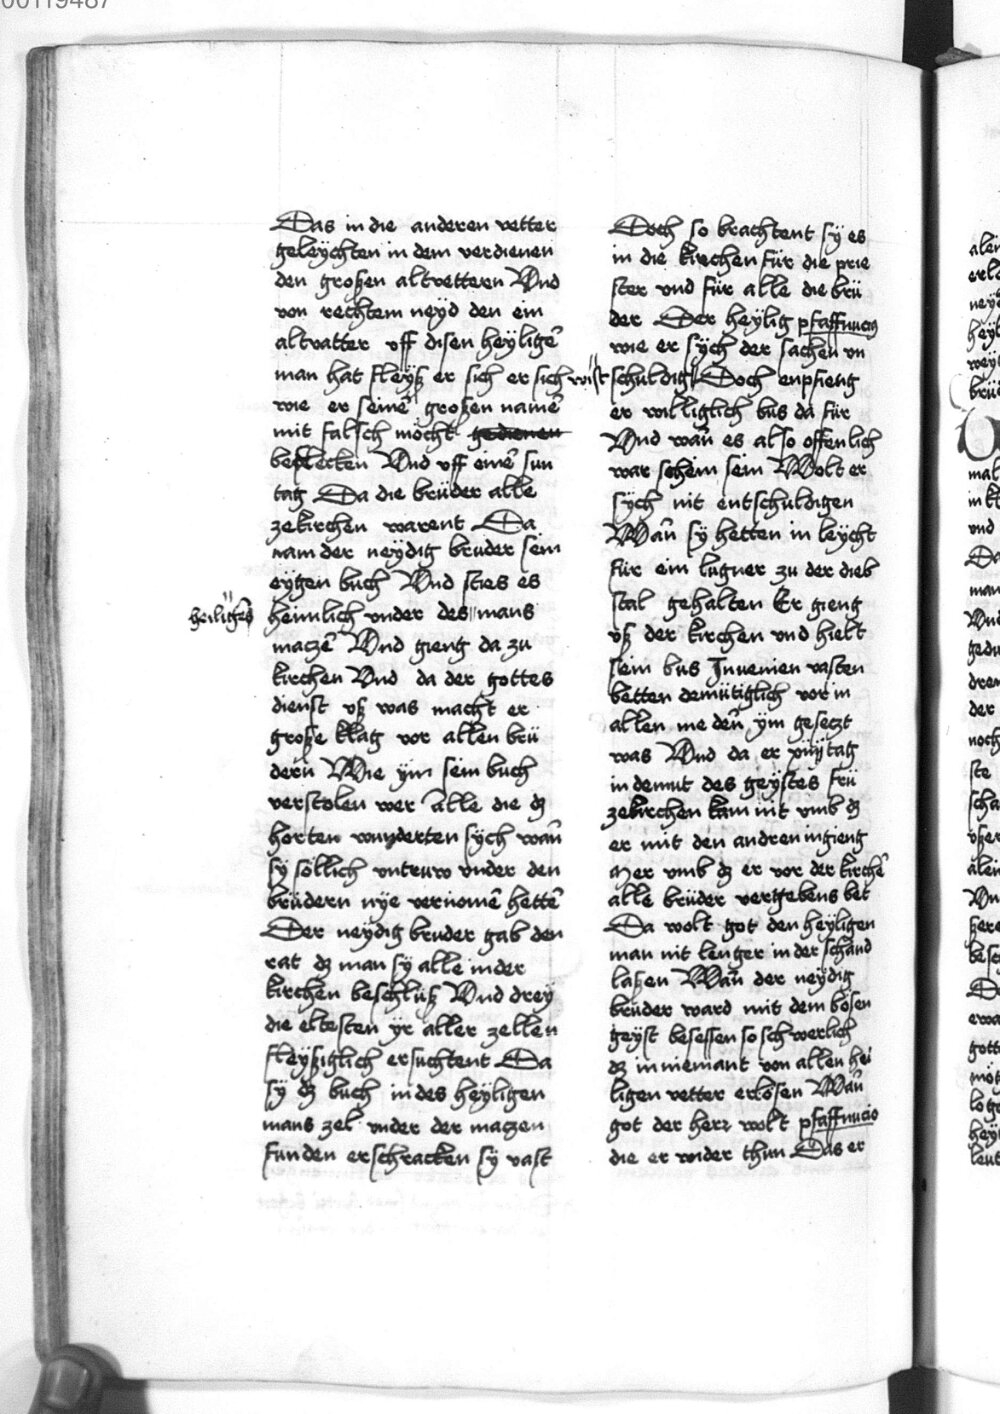 00119487
Das in die anderen vetter
geleÿchten in dem verdienen
den großen altvettern Vnd
von rechtem neyd den ein
altvatter vff disen heÿligē
man hat fleÿß er sich er sich wist
wie er seinē großen namē
mit falsch möcht gedienen
beflecken Vnd vff einē sun
tag Da die brüder alle
zekirchen warent Da
nam der neÿdig bruder sein
eÿgen buch Vnd sties es
heiligēs heimlich vnder des mans
maczē Vnd gieng da zu
kirchen Vnd da der gottes
dienst vß was macht er
große klag vor allen brü
dern Wie ÿm sein buch
verstolen wer alle die dz
horten wunderten sÿch wan̄
sÿ söllich vntruw vnder den
brüdern nÿe vernomē hettē
Der neÿdig bruder gab den
rat dz man sÿ alle in der
kirchen beschlüß Vnd dreÿ
die eltesten ÿr aller zellen
fleÿßiglich ersuchtent Da
sÿ dz buch in des heÿligen
mans zel vnder der maczen
funden erschracken sÿ vast
Doch so brachtent sÿ es
in die kirchen für die prie
ster vnd für alle die brü
der Der heÿlig pfaffnucius
wie er sÿch der sachen vn
schuldig Doch enpfieng
er williglich bus da für
Vnd wan̄ es also offenlich
war schein sein Wolt er
sÿch nit entschuldigen
Wan̄ sÿ hetten in leÿcht
für ein lugner zu der dieb
stal gehalten Er gieng
vß der kirchen vnd hielt
sein bus Inuenien vasten
betten demütiglich vor in
allen me den̄ ÿm geseczt
was Vnd da er xiiij tag
in demut des geÿstes frü
zekirchen kam nit vmb dz
er mit den andren in gieng
Mer vmb dz er vor der kirchē
alle brüder vergebens bet
Da wolt got den heÿligen
man nit lenger in der schand
laßen Wan̄ der neÿdig
brüder ward mit dem bösen
geÿst besessen so schwerlich
dz in niemant von allen hei
ligen vetter erlösen Wan̄
got der herr wolt pfaffnucio
die er wider thun Das er